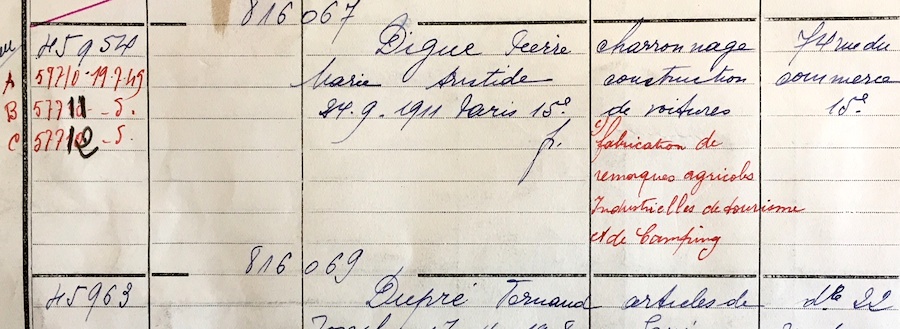 816 067
45954 Digue Pierre charronnage 74 rue du
A 57710-19.7.49 Marie Aristide construction commerce
B 57711 -S. 24.9.1911 Paris 15e de voitures 15e
C 57712 -S. f. c) fabrication de
remorques agricoles
Industrielles de tourisme
et de Camping
816 069
45963 Dupré Fernand articles de 22